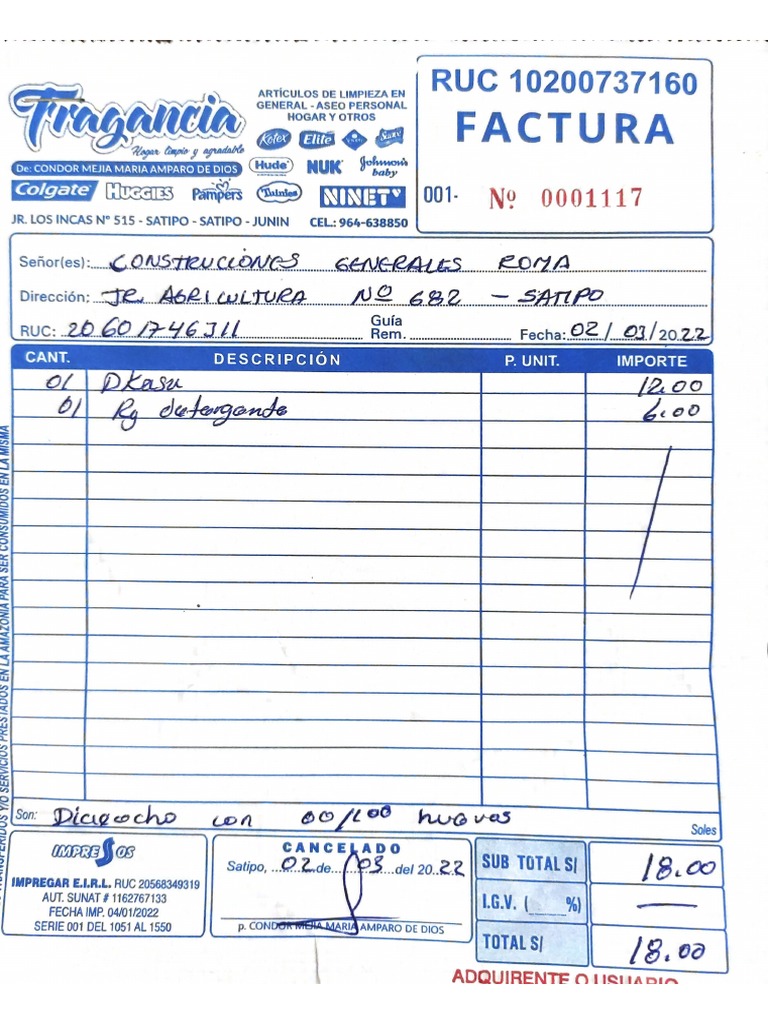 Fragancia
Hogar limpio y agradable
De: CONDOR MEJIA MARIA AMPARO DE DIOS
ARTÍCULOS DE LIMPIEZA EN
GENERAL - ASEO PERSONAL
HOGAR Y OTROS
Kotex Elite Suave
Hude NUK Johnson's baby
Colgate HUGGIES Pampers Tuinies NINET
JR. LOS INCAS N° 515 - SATIPO - SATIPO - JUNIN CEL.: 964-638850
RUC 10200737160
FACTURA
001- Nº 0001117
Señor(es): CONSTRUCIONES GENERALES ROMA
Dirección: JR. AGRICULTURA Nº 682 - SATIPO
RUC: 20601746311 Guía Rem. Fecha: 02/03/2022
CANT. DESCRIPCIÓN P. UNIT. IMPORTE
01 DKasa 12.00
01 Rg detergante 6.00
TRANSFERIDOS Y/O SERVICIOS PRESTADOS EN LA AMAZONIA PARA SER CONSUMIDOS EN LA MISMA
Son: Dieciocho con 00/100 nuevos Soles
IMPRESOS
IMPREGAR E.I.R.L. RUC 20568349319
AUT. SUNAT # 1162767133
FECHA IMP. 04/01/2022
SERIE 001 DEL 1051 AL 1550
CANCELADO
Satipo, 02 de 03 del 2022
p. CONDOR MEJIA MARIA AMPARO DE DIOS
SUB TOTAL S/ 18.00
I.G.V. ( %) —
TOTAL S/ 18.00
ADQUIRENTE O USUARIO